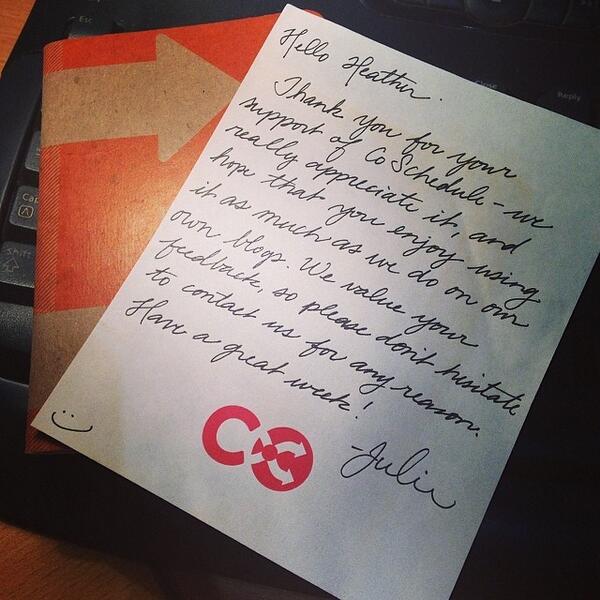 Hello Heather.
Thank you for your
support of CoSchedule - we
really appreciate it, and
hope that you enjoy using
it as much as we do on our
own blogs. We value your
feedback, so please don't hesitate
to contact us for any reason.
Have a great week!
-Julie
CO
Esc
Caps
A
Shift
Reply